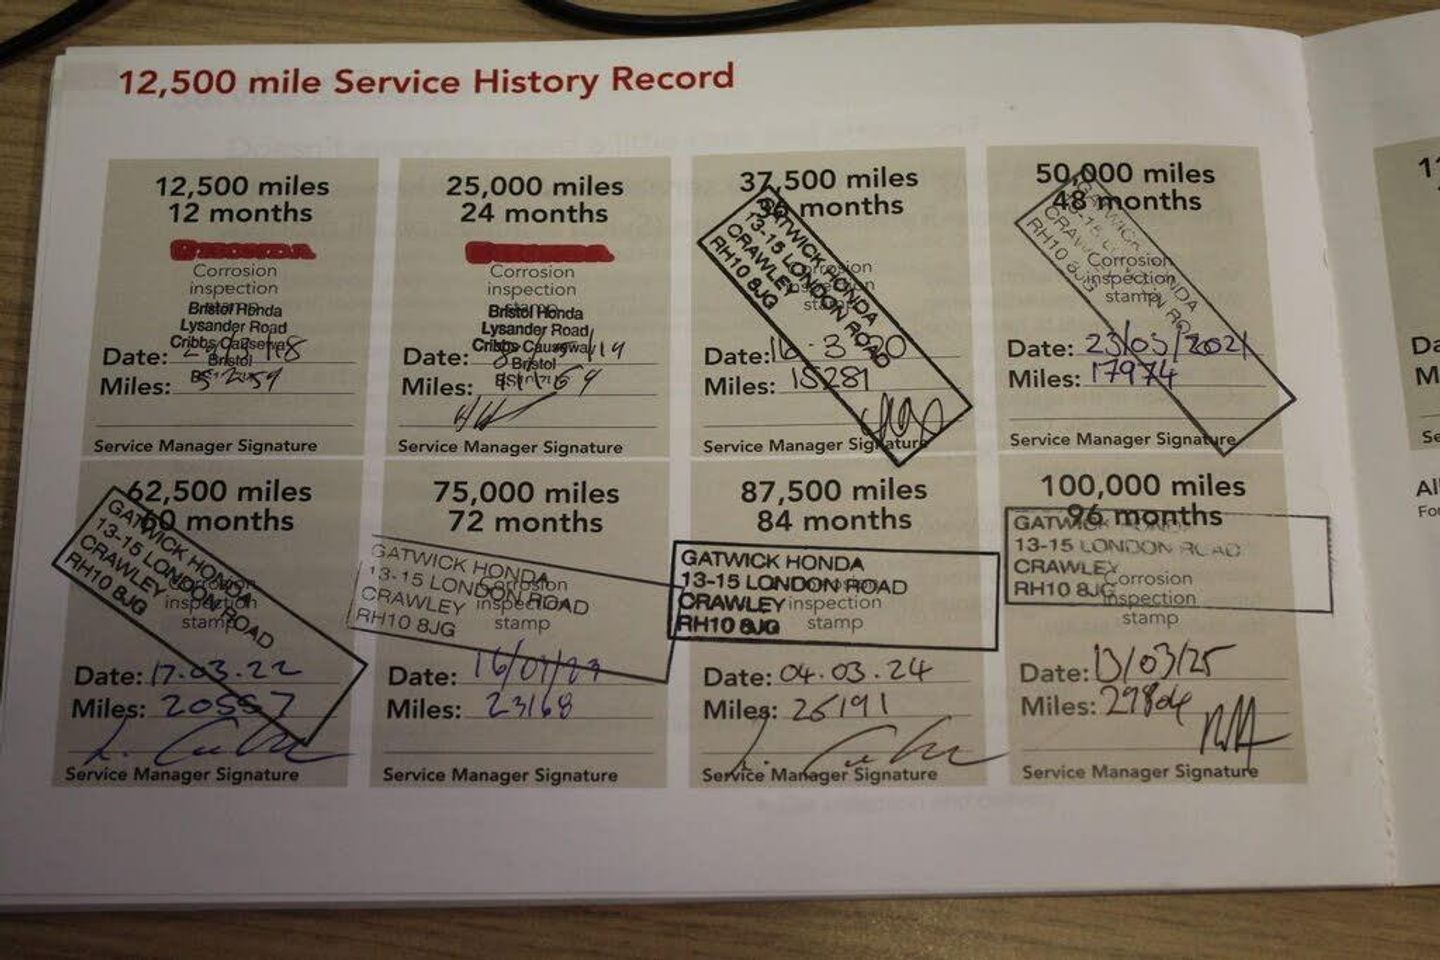 12,500 mile Service History Record
12,500 miles
12 months
Corrosion
inspection
stamp
Bristol Honda
Lysander Road
Cribbs Causeway
Bristol
Date:
Miles: 5259
Service Manager Signature
25,000 miles
24 months
Corrosion
inspection
stamp
Bristol Honda
Lysander Road
Cribbs Causeway
Bristol
Date:
Miles: 11169
Service Manager Signature
37,500 miles
36 months
GATWICK HONDA
13-15 LONDON ROAD
CRAWLEY
RH10 8JG
Corrosion
inspection
stamp
Date: 16.3.20
Miles: 15281
Service Manager Signature
50,000 miles
48 months
GATWICK HONDA
13-15 LONDON ROAD
CRAWLEY
RH10 8JG
Corrosion
inspection
stamp
Date: 23/03/2021
Miles: 17974
Service Manager Signature
62,500 miles
60 months
GATWICK HONDA
13-15 LONDON ROAD
CRAWLEY
RH10 8JG
Corrosion
inspection
stamp
Date: 17.03.22
Miles: 20557
Service Manager Signature
75,000 miles
72 months
GATWICK HONDA
13-15 LONDON ROAD
CRAWLEY
RH10 8JG
Corrosion
inspection
stamp
Date:
Miles: 23168
Service Manager Signature
87,500 miles
84 months
GATWICK HONDA
13-15 LONDON ROAD
CRAWLEY
RH10 8JG
inspection
stamp
Date: 04.03.24
Miles: 25191
Service Manager Signature
100,000 miles
96 months
GATWICK HONDA
13-15 LONDON ROAD
CRAWLEY
RH10 8JG
Corrosion
inspection
stamp
Date: 13/03/25
Miles: 29804
Service Manager Signature